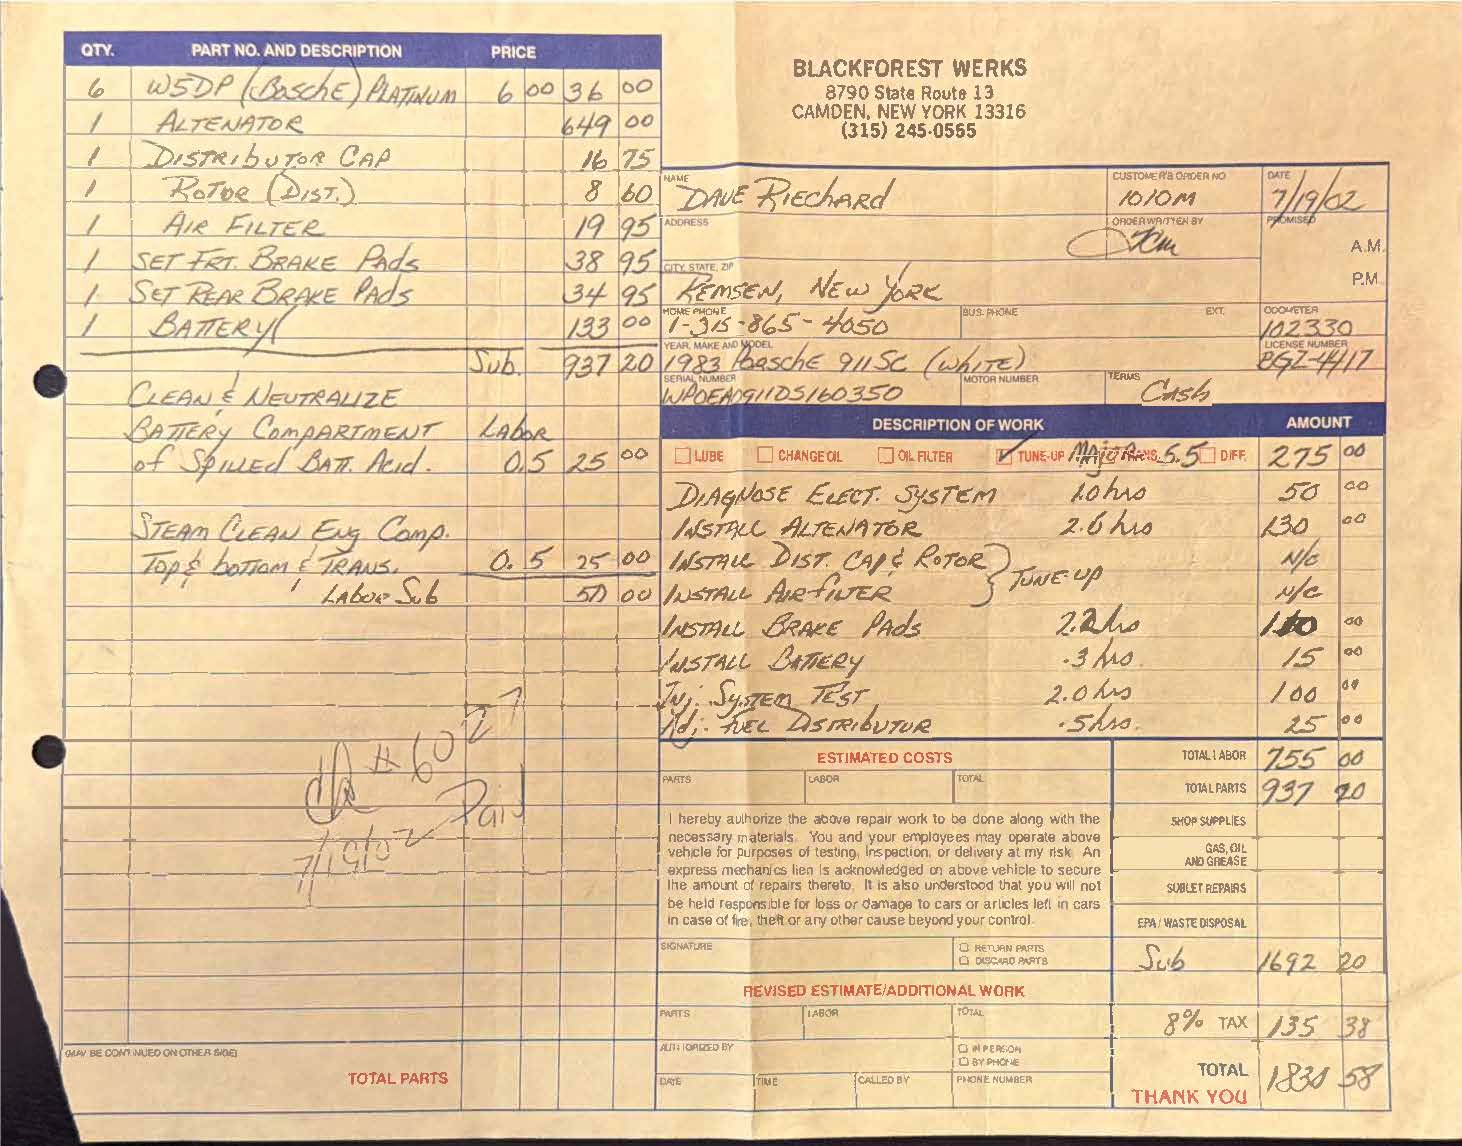 QTY. PART NO. AND DESCRIPTION PRICE
6 W5DP (Bosche) PLATINUM 6 00 36 00
1 ALTENATOR 649 00
1 DISTRIbUTOR CAP 16 75
1 ROTOR (DIST.) 8 60
1 AIR FILTER 19 95
1 SET FRT. BRAKE PAds 38 95
1 SET REAR BRAKE PAds 34 95
1 BATTERY 133 00
Sub. 937 20
CLEAN & NEUTRALIZE
BATTERY COMPARTMENT LAboR
of SPILLED BATT. Acid. 0.5 25 00
STEAM CLEAN Eng Comp.
Top & bottom & TRANS. 0.5 25 00
LAboR Sub 50 00
ck # 6027
7/19/02 Paid
(MAY BE CONTINUED ON OTHER SIDE)
TOTAL PARTS
BLACKFOREST WERKS
8790 State Route 13
CAMDEN, NEW YORK 13316
(315) 245-0555
NAME CUSTOMER'S ORDER NO. DATE
DAVE RIEchARd 1010M 7/19/02
ADDRESS ORDER WRITTEN BY PROMISED
A.M.
CITY, STATE, ZIP P.M.
REMSEN, NEW YORK
HOME PHONE BUS. PHONE EXT. ODOMETER
1-315-865-4050 102330
YEAR, MAKE AND MODEL LICENSE NUMBER
1983 PORSCHE 911SC (WhITE) BGZ-4417
SERIAL NUMBER MOTOR NUMBER TERMS
WPOEA0911DS160350 Cash
DESCRIPTION OF WORK AMOUNT
LUBE CHANGE OIL OIL FILTER TUNE-UP MAjoR TRANS. 5.5 DIFF. 275 00
DIAGNOSE ELECT. SYSTEM 1.0 hrs 50 00
INSTALL ALTENATOR 2.6 hrs 130 00
INSTALL DIST. CAP & ROTOR N/c
TUNE-UP
INSTALL AIR FILTER N/c
INSTALL BRAKE PAds 2.2 hrs 110 00
INSTALL BATTERY .3 hrs. 15 00
INj. SYSTEM TEST 2.0 hrs 100 00
Adj. FUEL DISTRIbUTOR .5 hrs. 25 00
ESTIMATED COSTS TOTAL LABOR 755 00
PARTS LABOR TOTAL TOTAL PARTS 937 20
I hereby authorize the above repair work to be done along with the
necessary materials. You and your employees may operate above
vehicle for purposes of testing, inspection, or delivery at my risk. An
express mechanics lien is acknowledged on above vehicle to secure
the amount of repairs thereto. It is also understood that you will not
be held responsible for loss or damage to cars or articles left in cars
in case of fire, theft or any other cause beyond your control.
SHOP SUPPLIES
GAS, OIL
AND GREASE
SUBLET REPAIRS
EPA / WASTE DISPOSAL
SIGNATURE RETURN PARTS
DISCARD PARTS
Sub 1692 20
REVISED ESTIMATE/ADDITIONAL WORK
PARTS LABOR TOTAL
8% TAX 135 38
AUTHORIZED BY IN PERSON
BY PHONE
DATE TIME CALLED BY PHONE NUMBER
TOTAL 1830 58
THANK YOU